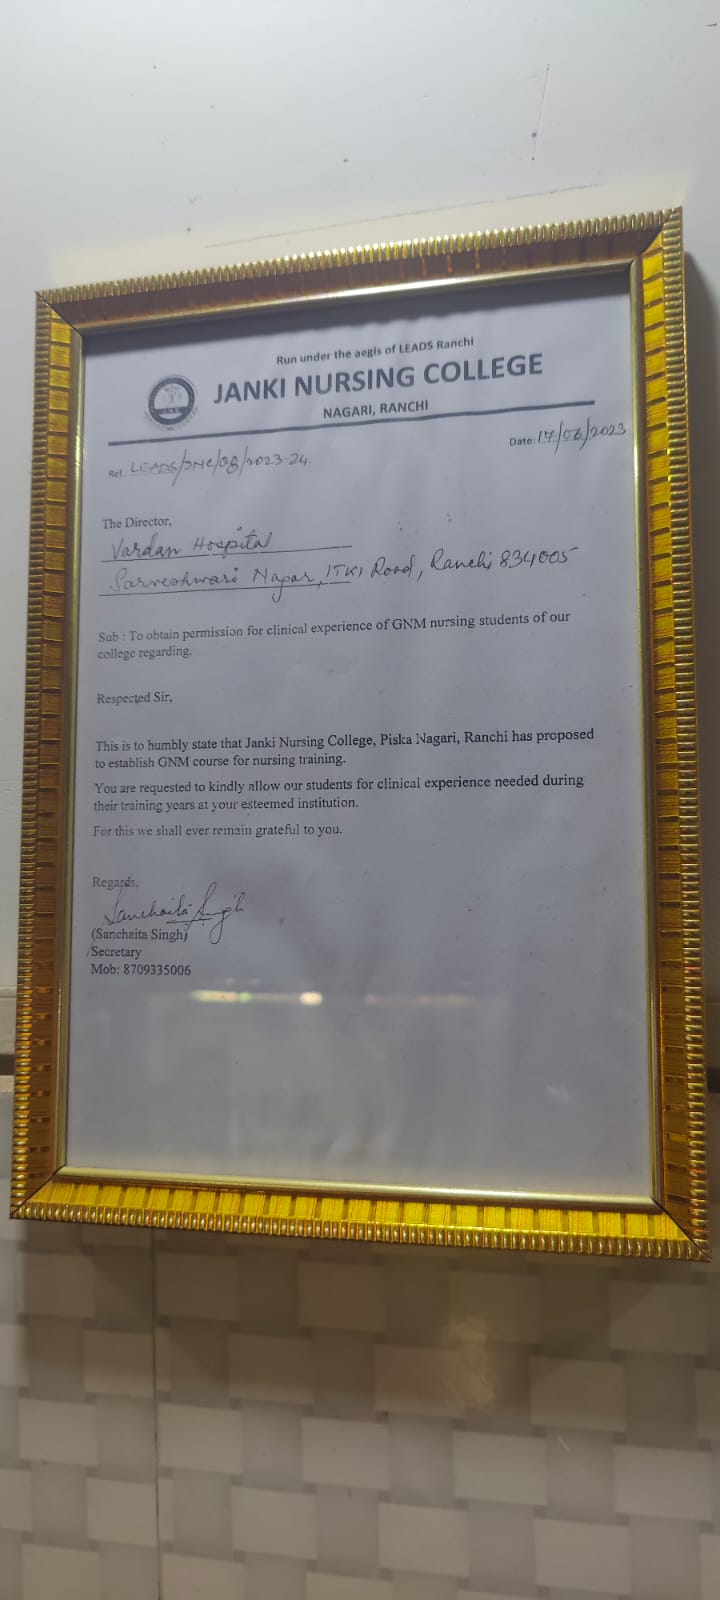 Run under the aegis of LEADS Ranchi
JANKI NURSING COLLEGE
NAGARI, RANCHI
Ref. LEADS/JNC/08/2023-24
Date: 17/06/2023
The Director,
Vardan Hospital
Sarveshwari Nagar, ITKI Road, Ranchi 834005
Sub : To obtain permission for clinical experience of GNM nursing students of our
college regarding.
Respected Sir,
This is to humbly state that Janki Nursing College, Piska Nagari, Ranchi has proposed
to establish GNM course for nursing training.
You are requested to kindly allow our students for clinical experience needed during
their training years at your esteemed institution.
For this we shall ever remain grateful to you.
Regards,
Sanchaita Singh
(Sanchaita Singh)
Secretary
Mob: 8709335006